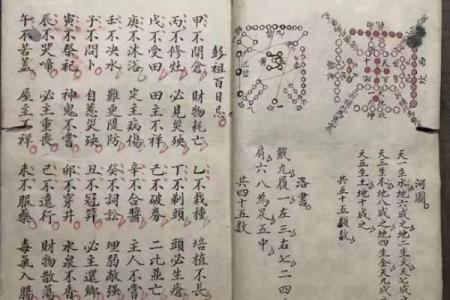 河圖
天一生水地六成之地二生火天七成
天三生木地八成之地四生金天九成
天五生土地十成之
共五十五數
洛書
戴九履一左三右七二四
肩六八為足五中
共四十五數
彭祖百日忌
甲不開倉 財物耗亡 乙不栽種 培植不長
丙不修灶 必見災殃 丁不剃頭 頭必生瘡
戊不受田 田主不祥 己不破券 二比並亡
庚不沐浴 定主病傷 辛不合醬 主人不嘗
壬不決水 難更隄防 癸不詞訟 理弱敵強
子不問卜 自惹災殃 丑不冠 必主還鄉
寅不祭祀 神鬼不嘗 卯不穿井 水泉不香
辰不哭啼 必主重喪 巳不遠行 財物散
午不苫蓋 屋主不祥 未不服藥 毒氣入腸